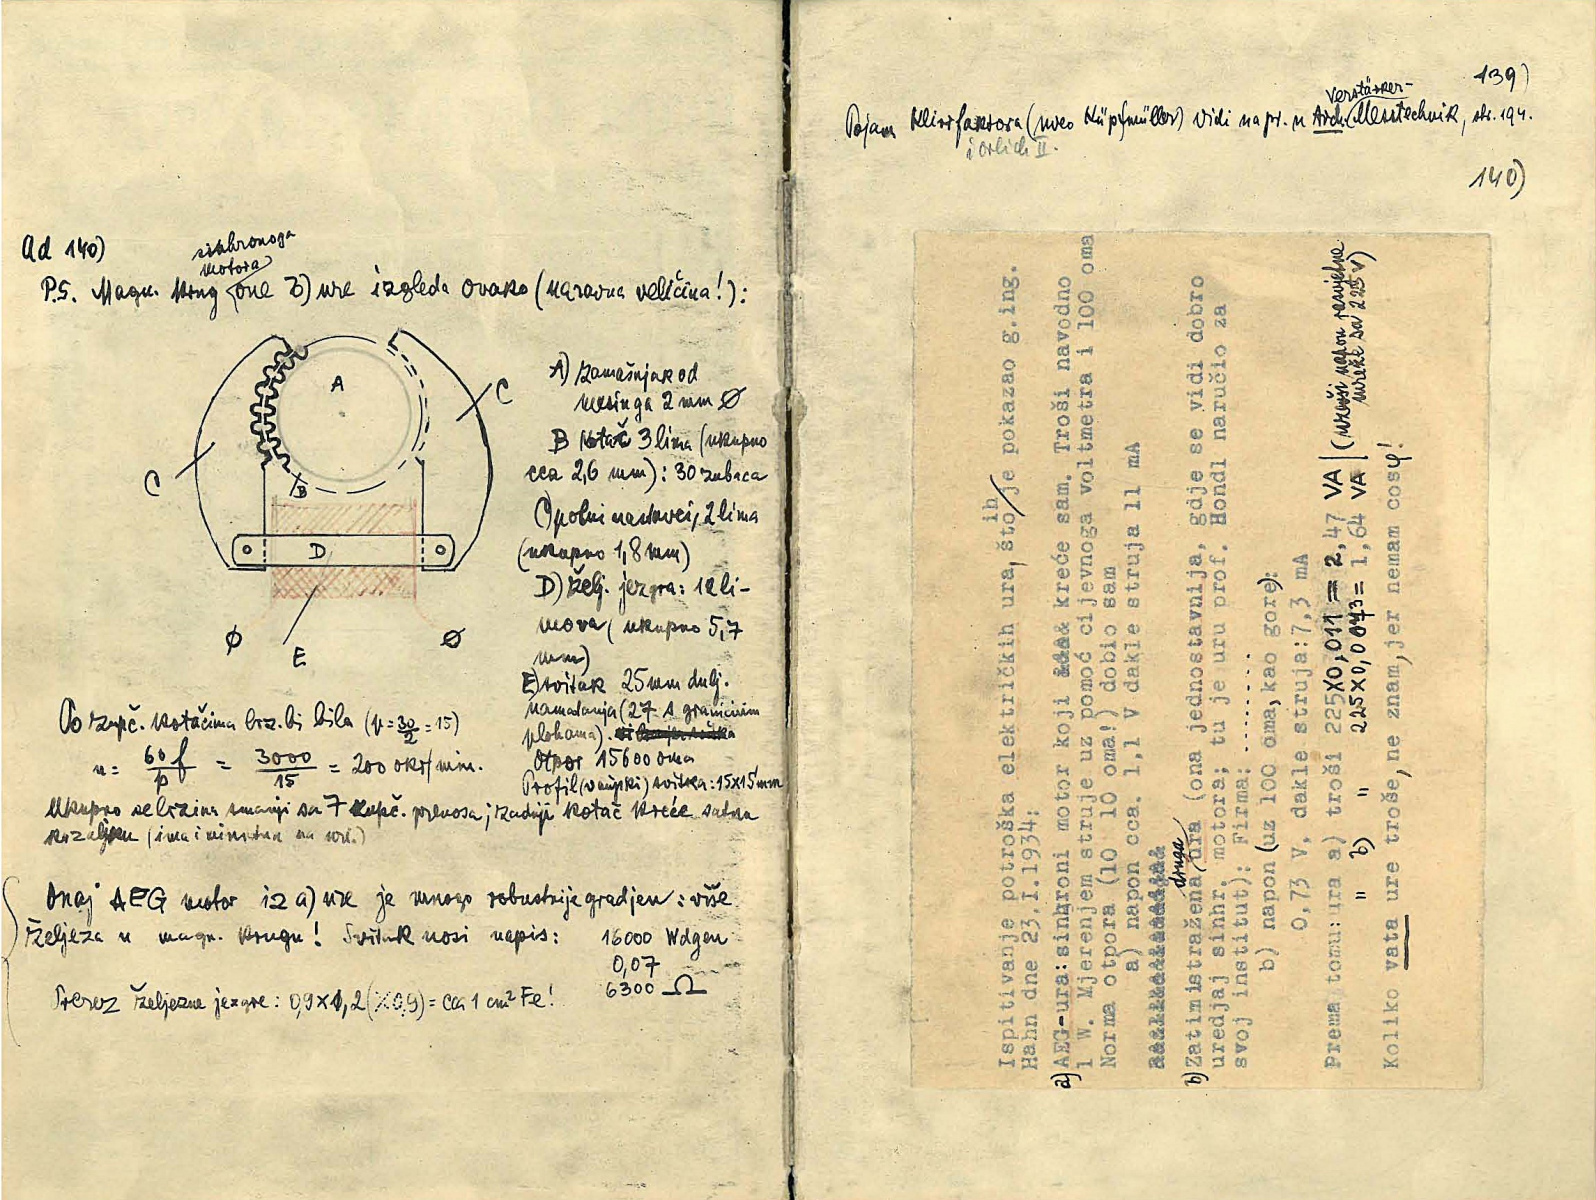 Ad 140)
sinhronoga
motora
P.S. Magn. krug (one b) ure izgleda ovako (naravna veličina!):
A
C
C
B
D
E
Ø
Ø
A) Zamašnjak od
mesinga 2 mm Ø
B Kotač 3 lima (ukupno
cca 2,6 mm): 30 zubaca
C) polni nastavci, 2 lima
(ukupno 1,8 mm)
D) želj. jezgra: 12 li-
mova (ukupno 5,7
mm)
E) svitak 25 mm dulj.
namatanja (27 s graničnim
plohama).
Otpor 15600 oma
Profil (vanjski) svitka: 15x15 mm
Po zupč. kotačima brz. bi bila (p = 30/2 = 15)
n = 60 f / p = 3000 / 15 = 200 okr/min.
Ukupno se brzina smanji sa 7 zupč. prenosa; zadnji kotač kreće satnu
kazaljku (ima i minutnu na uri.)
Onaj AEG motor iz a) ure je mnogo robustnije gradjen: više
željeza u magn. krugu! Svitak nosi napis: 16000 Wdgen
0,07
6300 Ω
Presez željezne jezgre: 0,9 x 1,2 (x 0,9) = cca 1 cm² Fe!
139)
Verstärker-
Pojam Klirrfaktora (uveo Küpfmüller) vidi napr. u Arch. Messtechnik, str. 194.
i Orlich II.
140)
Ispitivanje potroška električkih ura, što ih je pokazao g.ing.
Hahn dne 23.I.1934:
a) AEG-ura: sinhroni motor koji kreće sam. Troši navodno
1 W. Mjerenjem struje uz pomoć cijevnoga voltmetra i 100 oma
Norma otpora (10 10 oma!) dobio sam
a) napon cca. 1,1 V dakle struja 11 mA
b) Zatim istražena druga ura (ona jednostavnija, gdje se vidi dobro
uredjaj sinhr. motora; tu je uru prof. Hondl naručio za
svoj institut): Firma: ........
b) napon (uz 100 oma, kao gore):
0,73 V, dakle struja: 7,3 mA
Prema tomu: ura a) troši 225X0,011 = 2,47 VA (uzevši napon rasvjetne
" b) " 225x0,0073 = 1,64 VA mreže sa 225 V)
Koliko vata ure troše, ne znam, jer nemam cos φ!